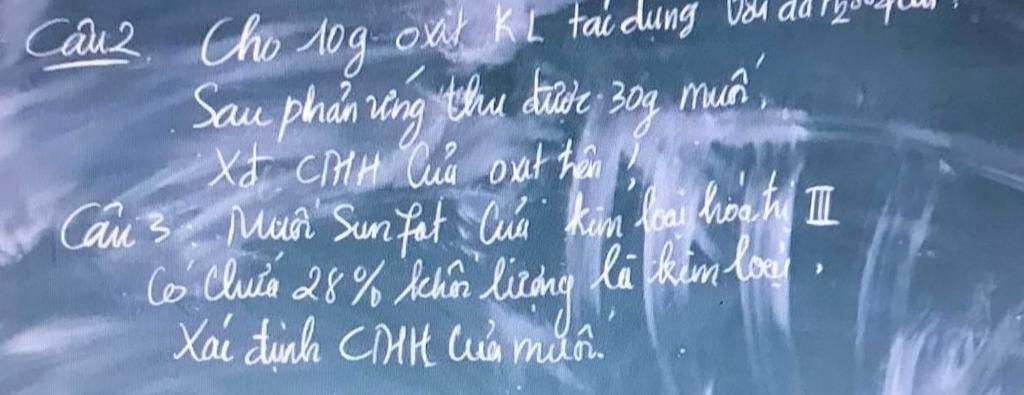 Câu 2. Cho 10g oxit KL tác dụng với dd H2SO4 dư.
Sau phản ứng thu được 30g muối.
Xđ CTHH của oxit trên!
Câu 3: Muối Sunfat của kim loại hóa trị III
Có chứa 28% khối lượng là kim loại.
Xác định CTHH của muối.